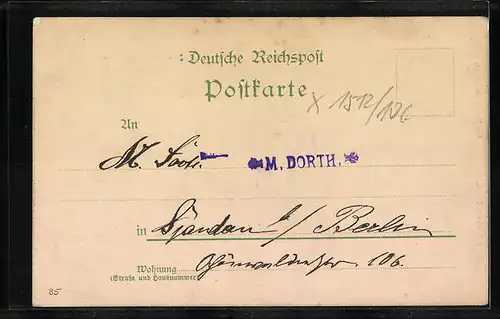 Deutsche Reichspost
Postkarte
x 1512/106
An
M. M. DORTH.
in Spandau b/ Berlin
Wohnung 106.
(Straße und Hausnummer)
85